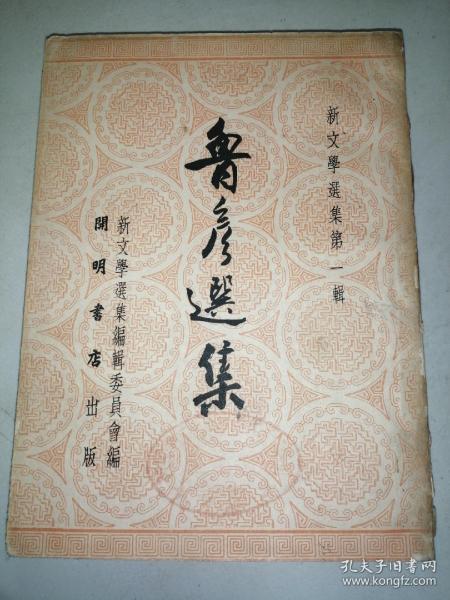 新文學選集第一輯
魯彥選集
新文學選集編輯委員會編
開明書店出版
孔夫子旧书网
www.kongfz.com